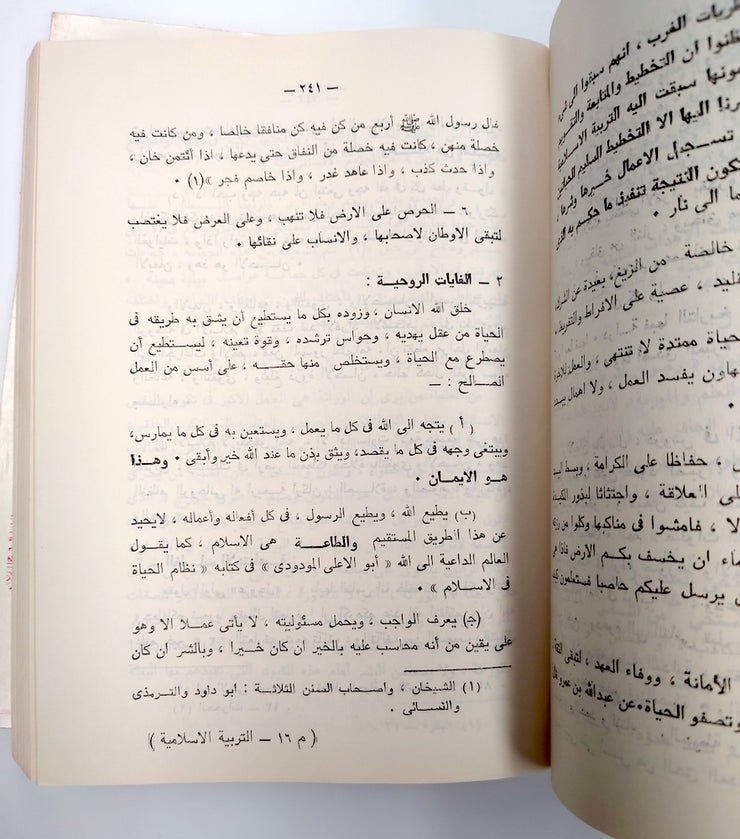 — ٢٤١ —
قال رسول الله ﷺ أربع من كن فيه كن منافقا خالصا ، ومن كانت فيه
خصلة منهن ، كانت فيه خصلة من النفاق حتى يدعها ، اذا أئتمن خان ،
واذا حدث كذب ، واذا عاهد غدر ، واذا خاصم فجر »(١) ٠
٦ — الحرص على الارض فلا تنهب ، وعلى العرض فلا يغتصب
لتبقى الأوطان لاصحابها ، والانساب على نقائها ٠
٢ — الغايات الروحية :
خلق الله الانسان ، وزوده بكل ما يستطيع أن يشق به طريقه فى
الحياة من عقل يهديه ، وحواس ترشده ، وقوة تعينه ، ليستطيع أن
يصطرع مع الحياة ، ويستخلص منها حقـــه ، على أسس من العمل
الصـالح : —
( أ ) يتجه الى الله فى كل ما يعمل ، ويستعين به فى كل ما يمارس،
ويبتغى وجهه فى كل ما يقصد، ويثق بإذن ما عند الله خير وأبقى ٠ وهـذا
هـو الايمـان ٠
(ب) يطيع الله ، ويطيع الرسول ، فى كل أفعاله وأعماله ، لايحيد
عن هذا الطريق المستقيم والطاعـــة هى الاسلام ، كما يقول
العالم الداعية الى الله « أبو الاعلى المودودى » فى كتابه « نظام الحياة
فى الاسـلام » ٠
(ج) يعرف الواجب ، ويحمل مسئوليته ، لا يأتى عمـلا الا وهو
على يقين من أنه محاسب عليه بالخير ان كان خـيرا ، وبالشر ان كان
(١) الشيخان ، واصحاب السنن الثلاثـة : ابو داود والتـرمذى
والنسـائى ٠
( م ١٦ — التربية الاسلامية )
نظريات الغرب ، أنهم سبقوا الى
ظنوا ان التخطيط والمتابعة والتقويم
سبقت اليه التربية الاسلامية
اليها الا التخطيط السليم
تسـجل الاعمال خـيرها وشرها ،
النتيجة تنفيذ ما حكم به
الى نار ٠
خالصة من الزيغ، بعيدة عن
عصية على الافراط والتفريط ،
ممتدة لا تنتهى ، والعمل
يفسد العمل ، ولا اهمال
٠ حفاظا على الكرامة ، وسط
العـلاقة ، واجتثاثا لبذور
، فامشوا فى مناكبها وكلوا من رزقه
ان يخسف بكـم الارض فاذا هى
يرسل عليكم حاصبا فستعلمون
الأمانة ، ووفاء العهد ، لتبقى
وتصفو الحياة٠ عن عبدالله بن عمرو